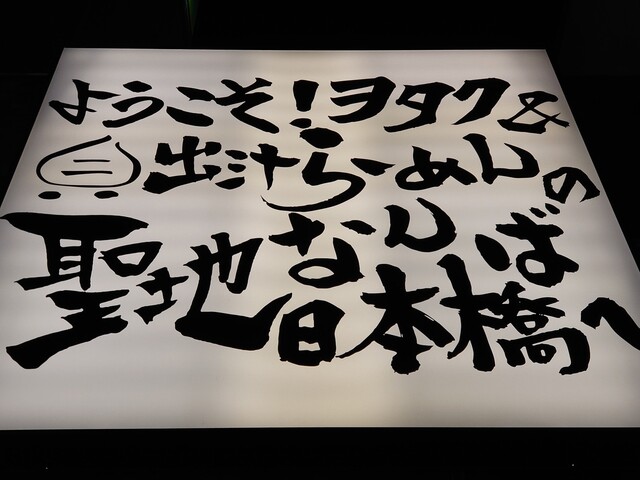 ようこそ!ヲタク&
三出汁らーめんの
聖地なんば
日本橋へ